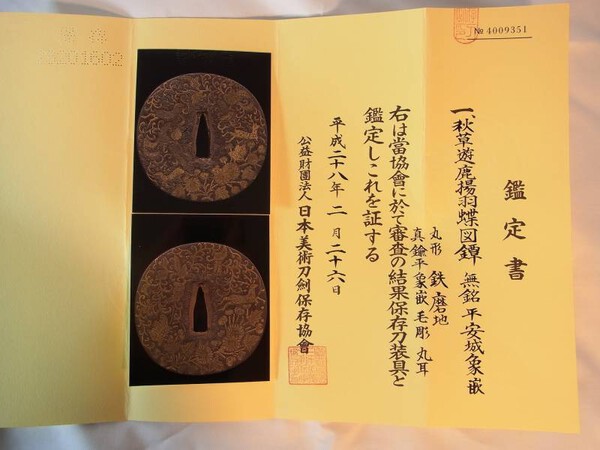 № 4009351
鑑定書
一、秋草遊鹿揚羽蝶図鐔 無銘 平安城象嵌
丸形 鉄磨地
真鍮平象嵌 毛彫 丸耳
右は當協會に於て審査の結果保存刀装具と
鑑定しこれを証する
平成二十八年二月二十六日
公益財團法人 日本美術刀劍保存協會